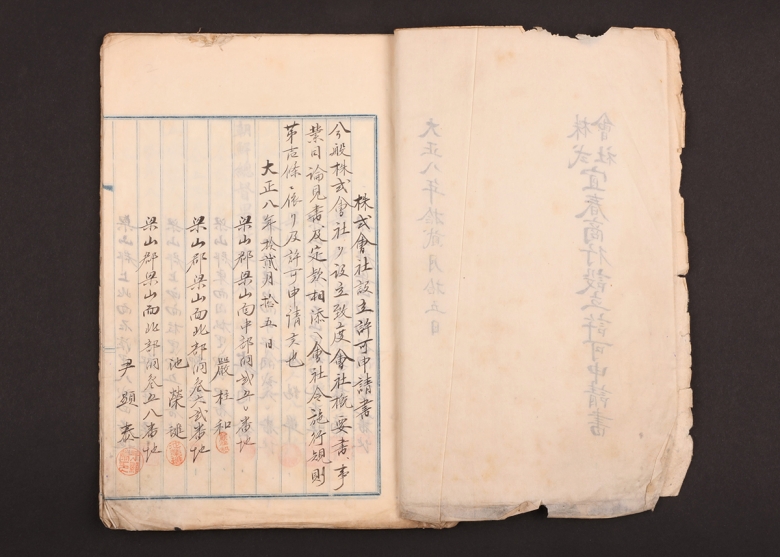 株式會社宜春商行設立許可申請書
大正八年拾貳月拾五日
株式會社設立許可申請書
今般株式會社ヲ設立致度會社概要書、事
業目論見書及定款相添ヘ會社令施行規則
第壱條ニ依リ及許可申請候也
大正八年拾貳月拾五日
梁山郡梁山面中部洞弐五番地
嚴柱和
梁山郡梁山面北部洞参六弐番地
池榮璡
梁山郡梁山面北部洞参五八番地
尹顯泰